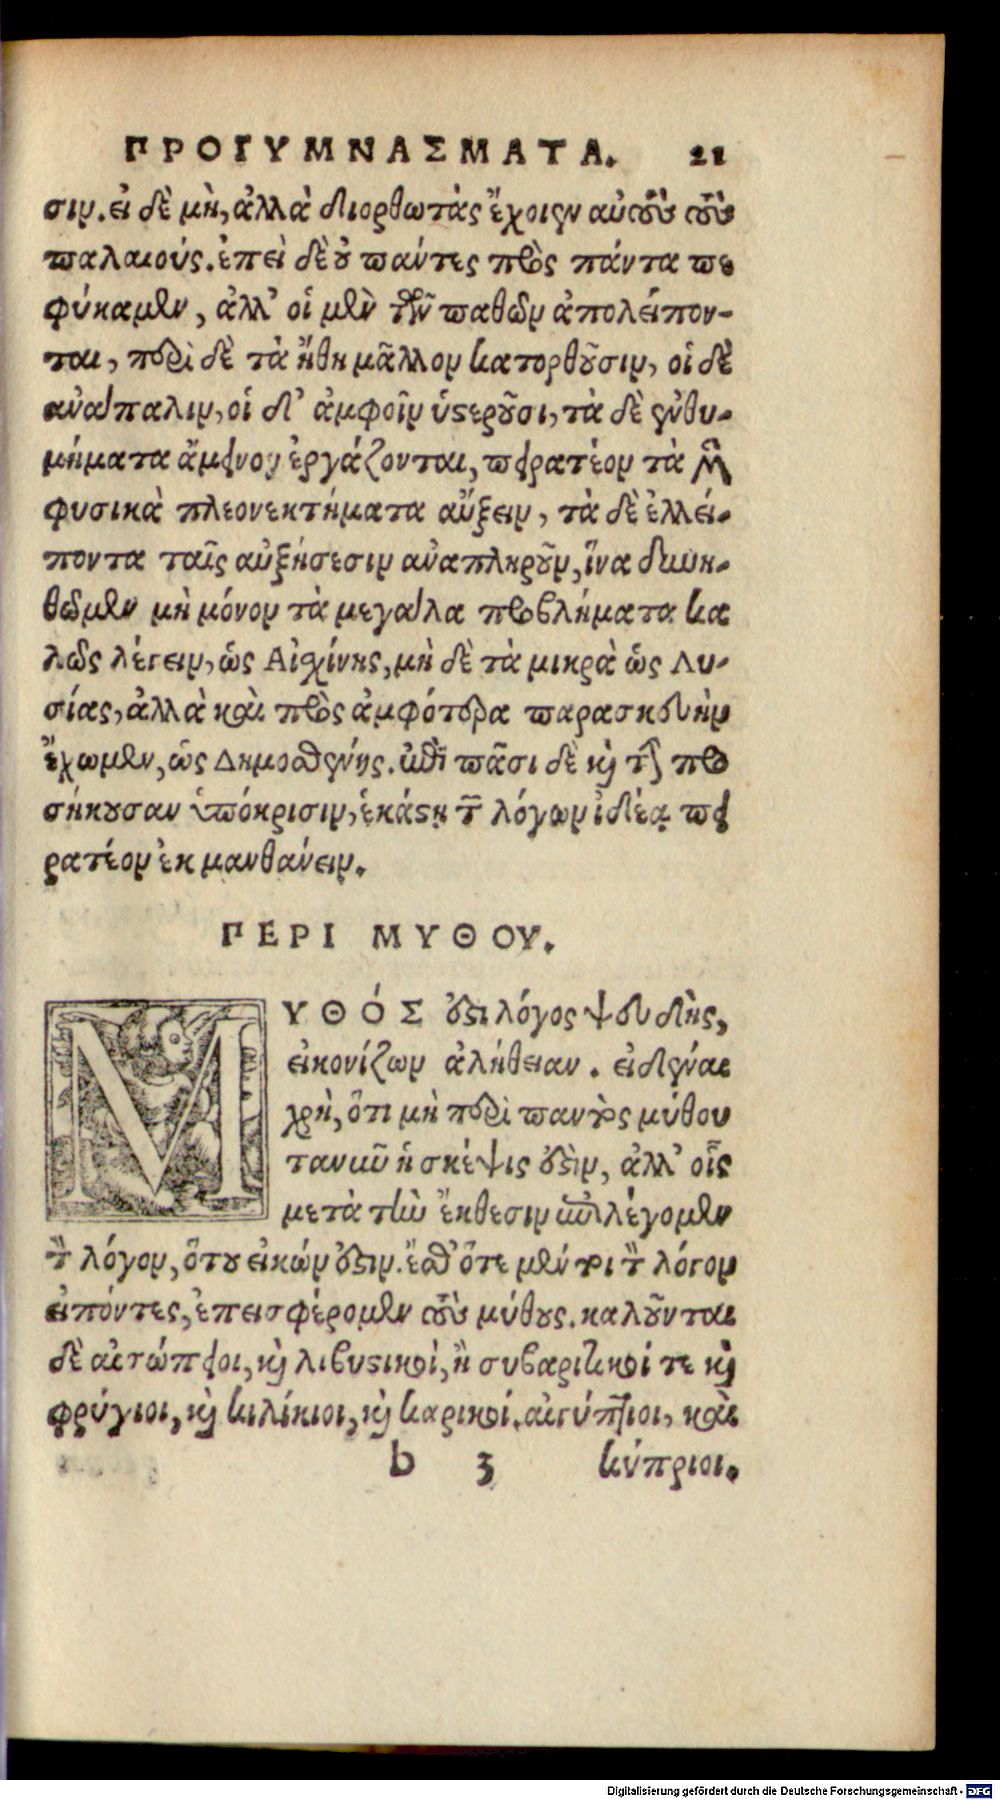 ΠΡΟΓΥΜΝΑΣΜΑΤΑ. 21
σιν. εἰ δὲ μὴ, ἀλλὰ διορθωτὰς ἔχοιεν αὐτοὺς τοὺς
παλαιούς. ἐπεὶ δὲ ȣ πάντες πρὸς πάντα πε
φύκαμεν, ἀλλ' οἱ μὲν τῶν παθῶν ἀπολείπον-
ται, περὶ δὲ τὰ ἤθη μᾶλλον κατορθοῦσιν, οἱ δὲ
ἀνάπαλιν, οἱ δ' ἀμφοῖν ὑστεροῦσι, τὰ δὲ ἐνθυ-
μήματα ἄμεινον ἐργάζονται, πειρατέον τὰ μὲν
φυσικὰ πλεονεκτήματα αὔξειν, τὰ δὲ ἐλλεί-
ποντα ταῖς αὐξήσεσιν ἀναπληροῦν, ἵνα δυνη-
θῶμεν μὴ μόνον τὰ μεγάλα προβλήματα κα
λῶς λέγειν, ὡς Αἰσχίνης, μὴ δὲ τὰ μικρὰ ὡς Λυ-
σίας, ἀλλὰ καὶ πρὸς ἀμφότερα παρασκευὴν
ἔχωμεν, ὡς Δημοσθένης. ἐπὶ πᾶσι δὲ καὶ τὴν προ
σήκουσαν ὑπόκρισιν, ἑκάστῃ τῶν λόγων ἰδέᾳ πει
ρατέον ἐκ μανθάνειν.
ΠΕΡΙ ΜΥΘΟΥ.
ΜΥΘΌΣ ἐστι λόγος ψευδὴς,
εἰκονίζων ἀλήθειαν. εἰδέναι
χρὴ, ὅτι μὴ περὶ παντὸς μύθου
τανῦν ἡ σκέψις ἐστὶν, ἀλλ' οἷς
μετὰ τὴν ἔκθεσιν ἐπιλέγομεν
τὸν λόγον, ὅτου εἰκών ἐστιν. ἔσθ' ὅτε μέντοι τὸν λόγον
εἰπόντες, ἐπεισφέρομεν τοὺς μύθους. καλοῦνται
δὲ αἰσώπειοι, καὶ λιβυστικοὶ, ἢ συβαριτικοί τε καὶ
φρύγιοι, καὶ κιλίκιοι, καὶ καρικοί. αἰγύπτιοι, καὶ
b 3 κύπριοι.
Digitalisierung gefördert durch die Deutsche Forschungsgemeinschaft - DFG